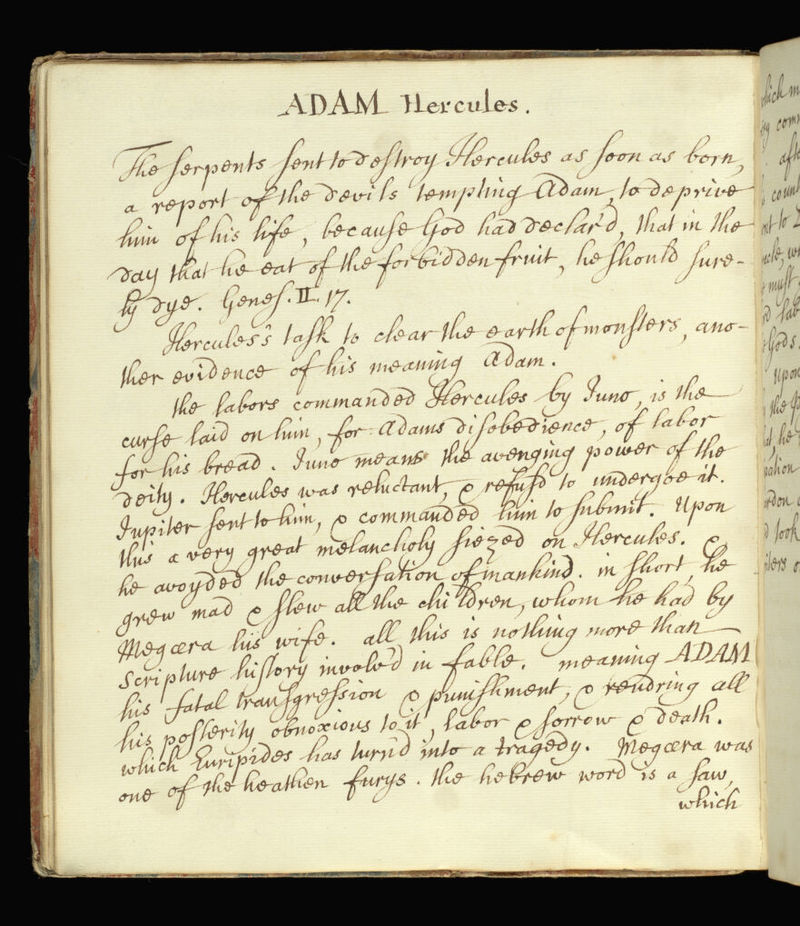 ADAM Hercules.
The serpents sent to destroy Hercules as soon as born,
a report of the devils tempting Adam, to deprive
him of his life, because God had declar'd, that in the
day that he eat of the forbidden fruit, he should sure-
ly dye. Genes. II. 17.
Hercules's task to clear the earth of monsters, ano-
ther evidence of his meaning Adam.
the labors commanded Hercules by Juno, is the
curse laid on him, for Adams disobedience, of labor
for his bread. Juno means the avenging power of the
deity. Hercules was reluctant, & refus'd to undergoe it.
Jupiter sent to him, & commanded him to submit. Upon
this a very great melancholy siezed on Hercules. &
he avoyded the conversation of mankind. in short, he
grew mad & slew all the children, whom he had by
Megæra his wife. all this is nothing more than
scripture history involv'd in fable. meaning ADAM
his fatal transgression & punishment, & rendring all
his posterity obnoxious to it, labor & sorrow & death.
which Euripides has turn'd into a tragedy. Megæra was
one of the heathen furys. the hebrew word is a saw,
which
which m
ry com
afte
count
nt to
must
d lab
Gods.
Upon
the p
at, he
pation
rdon
d look
iters o